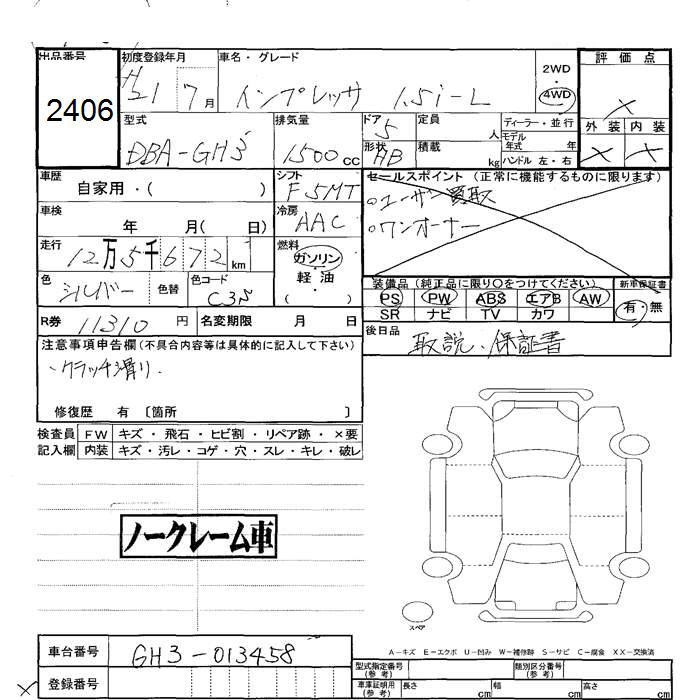 出品番号 初度登録年月 車名・グレード 2WD 評価点
2406 H21 7月 インプレッサ 1.5i-L 4WD ×
型式 排気量 ドア 定員 ディーラー・並行 外装 内装
DBA-GH3 1500cc 5 人 モデル年式 年 × ×
形状 積載
HB kg ハンドル 左・右
車歴 シフト セールスポイント (正常に機能するものに限ります)
自家用・( ) F5MT ○ユーザー買取
車検 冷房 ○ワンオーナー
年 月( 日) AAC
走行 燃料
12万5千672km ガソリン
色 色替 色コード 軽油
シルバー ( )
装備品(純正品に限り○をつけてください) 新車保証書
PS PW ABS エアB AW 有・無
SR ナビ TV カワ
R券 11310円 名変期限 月 日 後日品
取説、保証書
注意事項申告欄(不具合内容等は具体的に記入して下さい)
・クラッチ滑り.
修復歴 有 〔箇所 〕
検査員 FW キズ・飛石・ヒビ割・リペア跡・×要
記入欄 内装 キズ・汚レ・コゲ・穴・スレ・キレ・破レ
ノークレーム車
スペア
A-キズ E-エクボ U-凹み W-補修跡 S-サビ C-腐食 XX-交換済
車台番号 GH3-013458 型式指定番号(参考) 類別区分番号(参考)
× 登録番号 車庫証明用(参考) 長さ cm 幅 cm 高さ cm